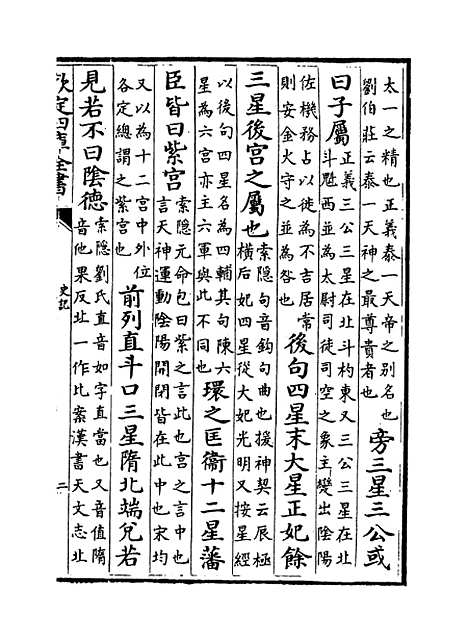 太一之精也正義泰一天帝之别名也
劉伯莊云泰一天神之最尊貴者也
旁三星三公或
曰子屬
正義三公三星在北斗杓東又三公三星在北
斗魁西並為太尉司徒司空之象主變出隂陽
佐機務占以徙為不吉居常
則安金火守之並為咎也
後句四星末大星正妃餘
三星後宫之屬也
索隠句音鈎句曲也援神契云辰極
橫后妃四星從大妃光明又按星經
以後句四星名為四輔其句陳六
星為六宫亦主六軍與此不同也
環之匡衞十二星藩
臣皆曰紫宫
索隠元命包曰紫之言此也宫之言中也
言天神運動隂陽開閉皆在此中也宋均
又以為十二宫中外位
各定總謂之紫宫也
前列直斗口三星隋北端兌若
見若不曰隂德
索隠劉氏直音如字直當也又音值隋
音他果反北一作比案漢書天文志北
欽定四庫全書
史記
二